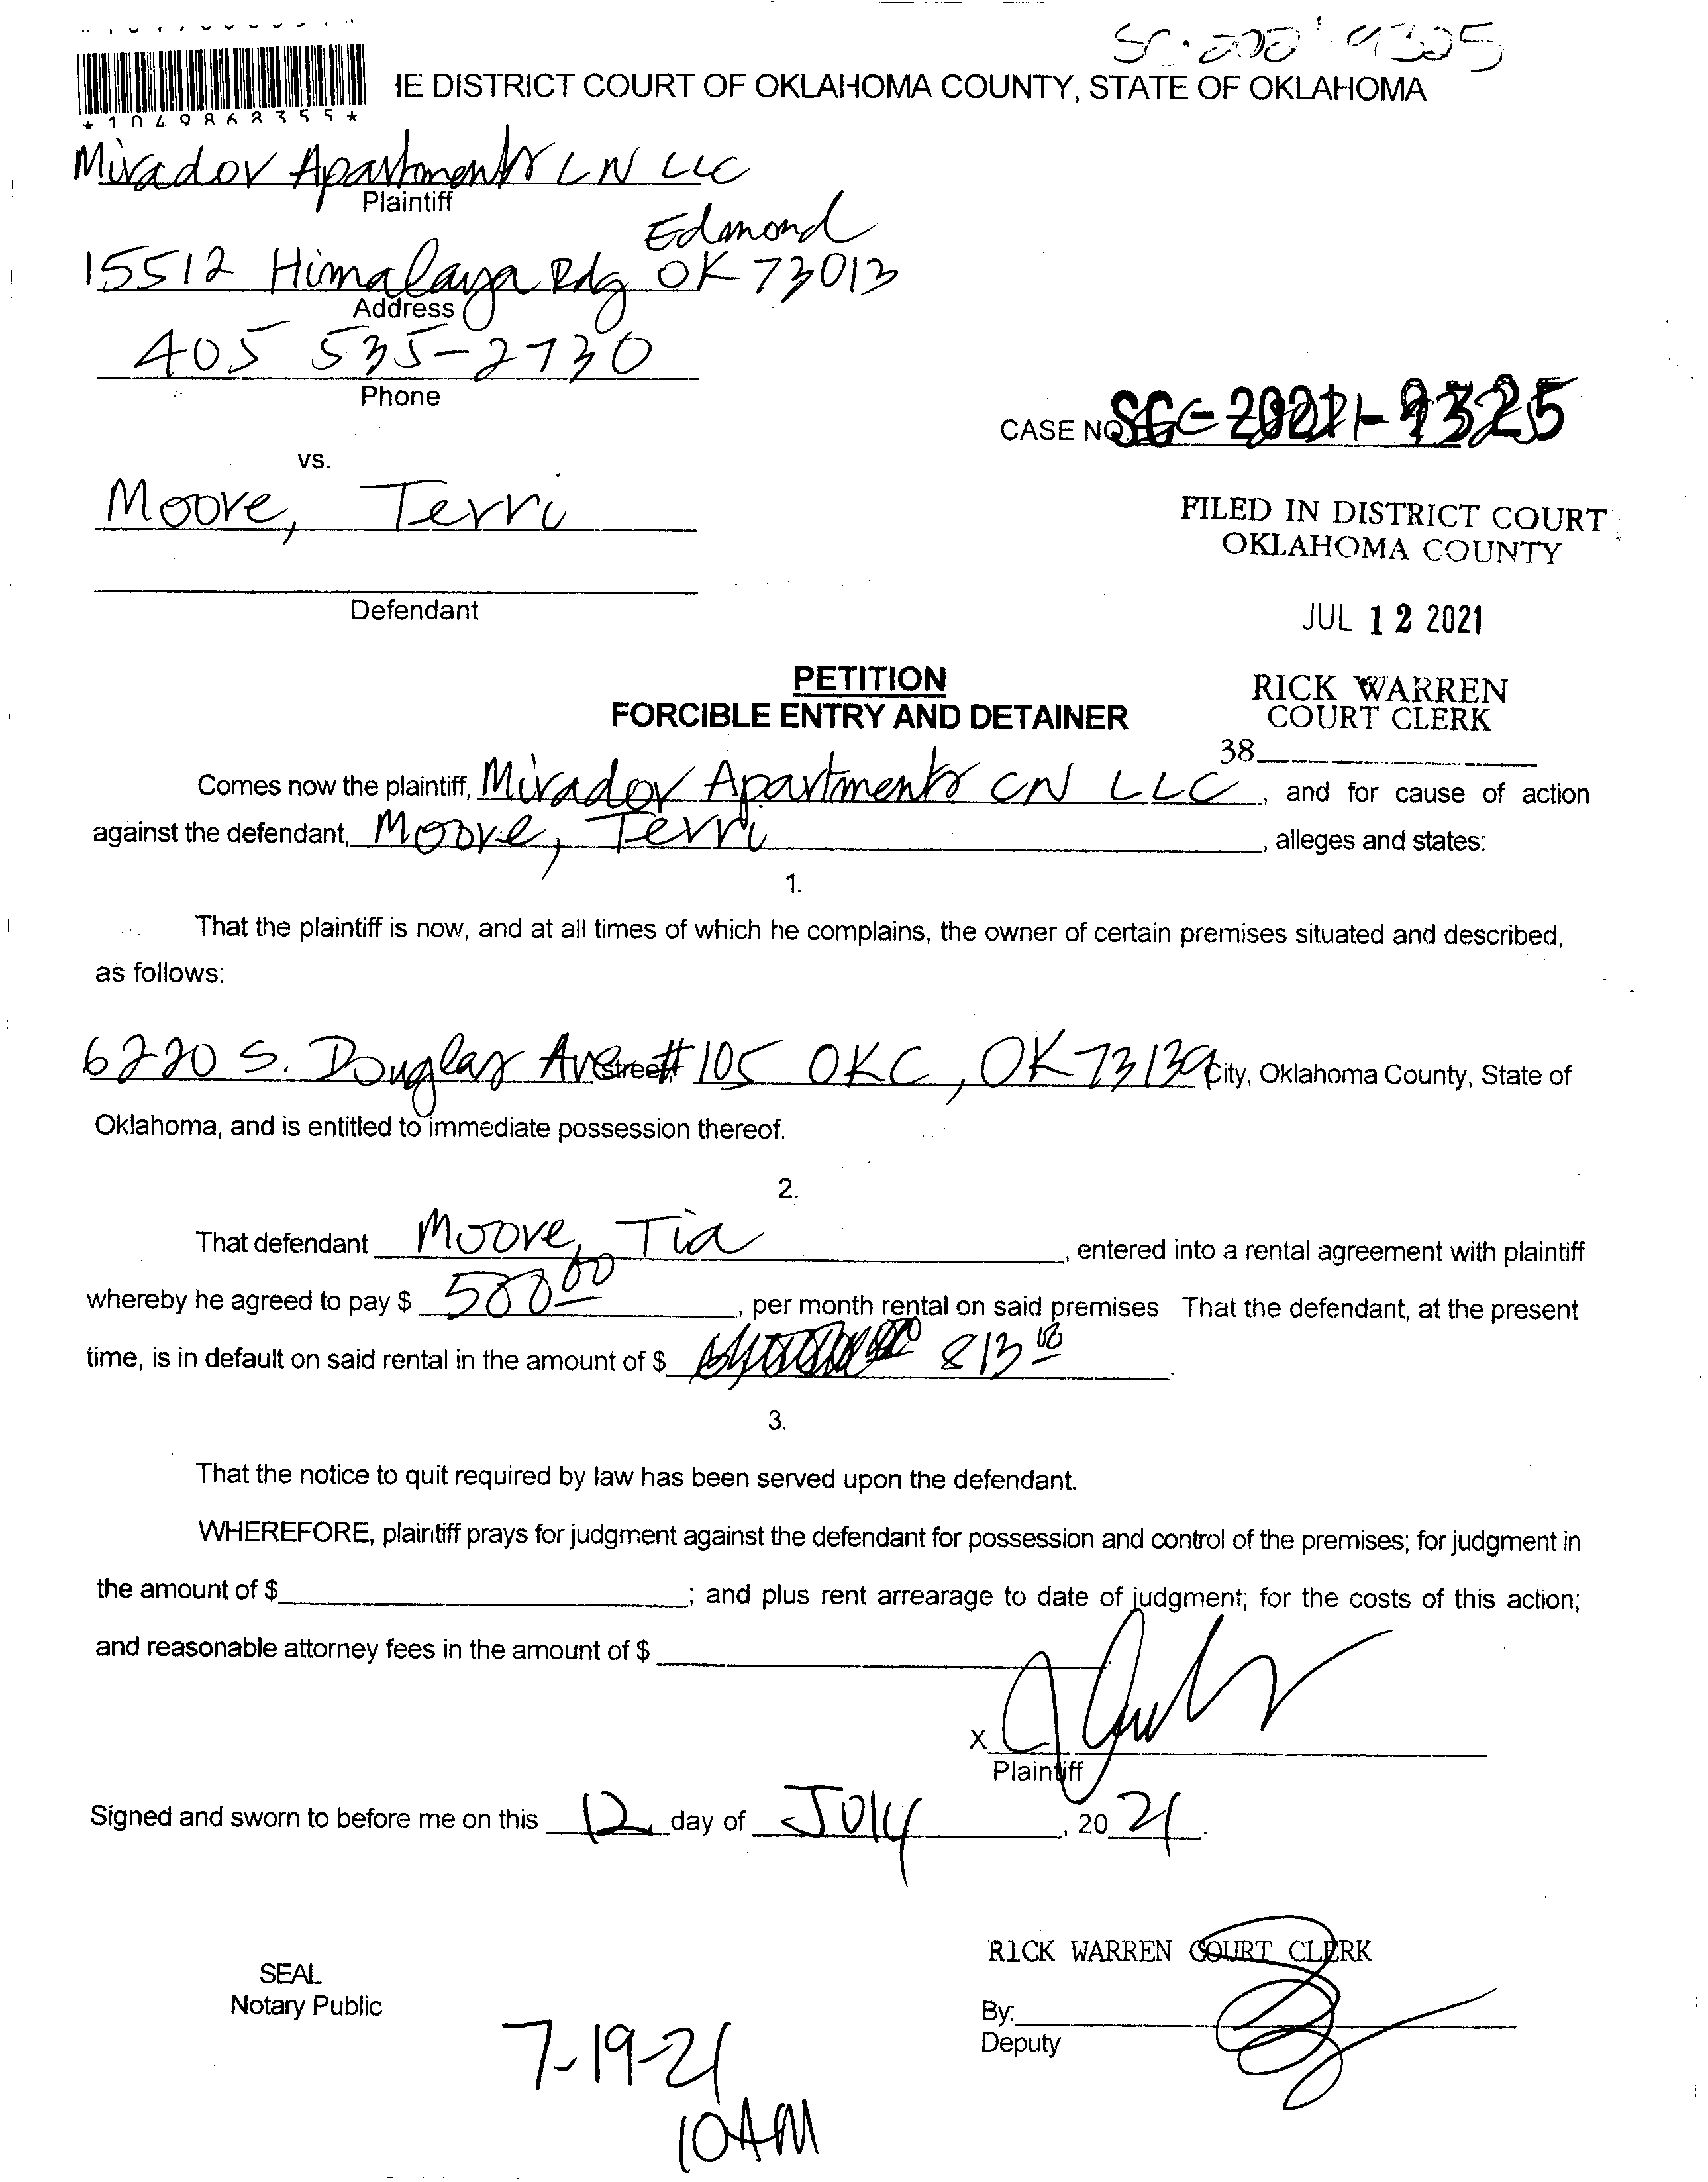 SC-202 9325
*1049868355*
HE DISTRICT COURT OF OKLAHOMA COUNTY, STATE OF OKLAHOMA
Mirador Apartments LN LLC
Plaintiff
Edmond
15512 Himalaya Rdg OK 73013
Address
405 535-2730
Phone
CASE NO SC-2021-9325
vs.
Moore, Terri
FILED IN DISTRICT COURT
OKLAHOMA COUNTY
Defendant
JUL 12 2021
PETITION
FORCIBLE ENTRY AND DETAINER
RICK WARREN
COURT CLERK
38
Comes now the plaintiff, Mirador Apartments CN LLC, and for cause of action
against the defendant, Moore, Terri, alleges and states:
1.
That the plaintiff is now, and at all times of which he complains, the owner of certain premises situated and described,
as follows:
6220 S. Douglas Ave Street #105 OKC, OK 73139 City, Oklahoma County, State of
Oklahoma, and is entitled to immediate possession thereof.
2.
That defendant Moore, Tia, entered into a rental agreement with plaintiff
whereby he agreed to pay $ 500.00, per month rental on said premises That the defendant, at the present
time, is in default on said rental in the amount of $ 813.00.
3.
That the notice to quit required by law has been served upon the defendant.
WHEREFORE, plaintiff prays for judgment against the defendant for possession and control of the premises; for judgment in
the amount of $; and plus rent arrearage to date of judgment; for the costs of this action;
and reasonable attorney fees in the amount of $
X
Plaintiff
Signed and sworn to before me on this 12 day of July, 2021.
RICK WARREN COURT CLERK
SEAL
Notary Public
By:
Deputy
7-19-21
10AM